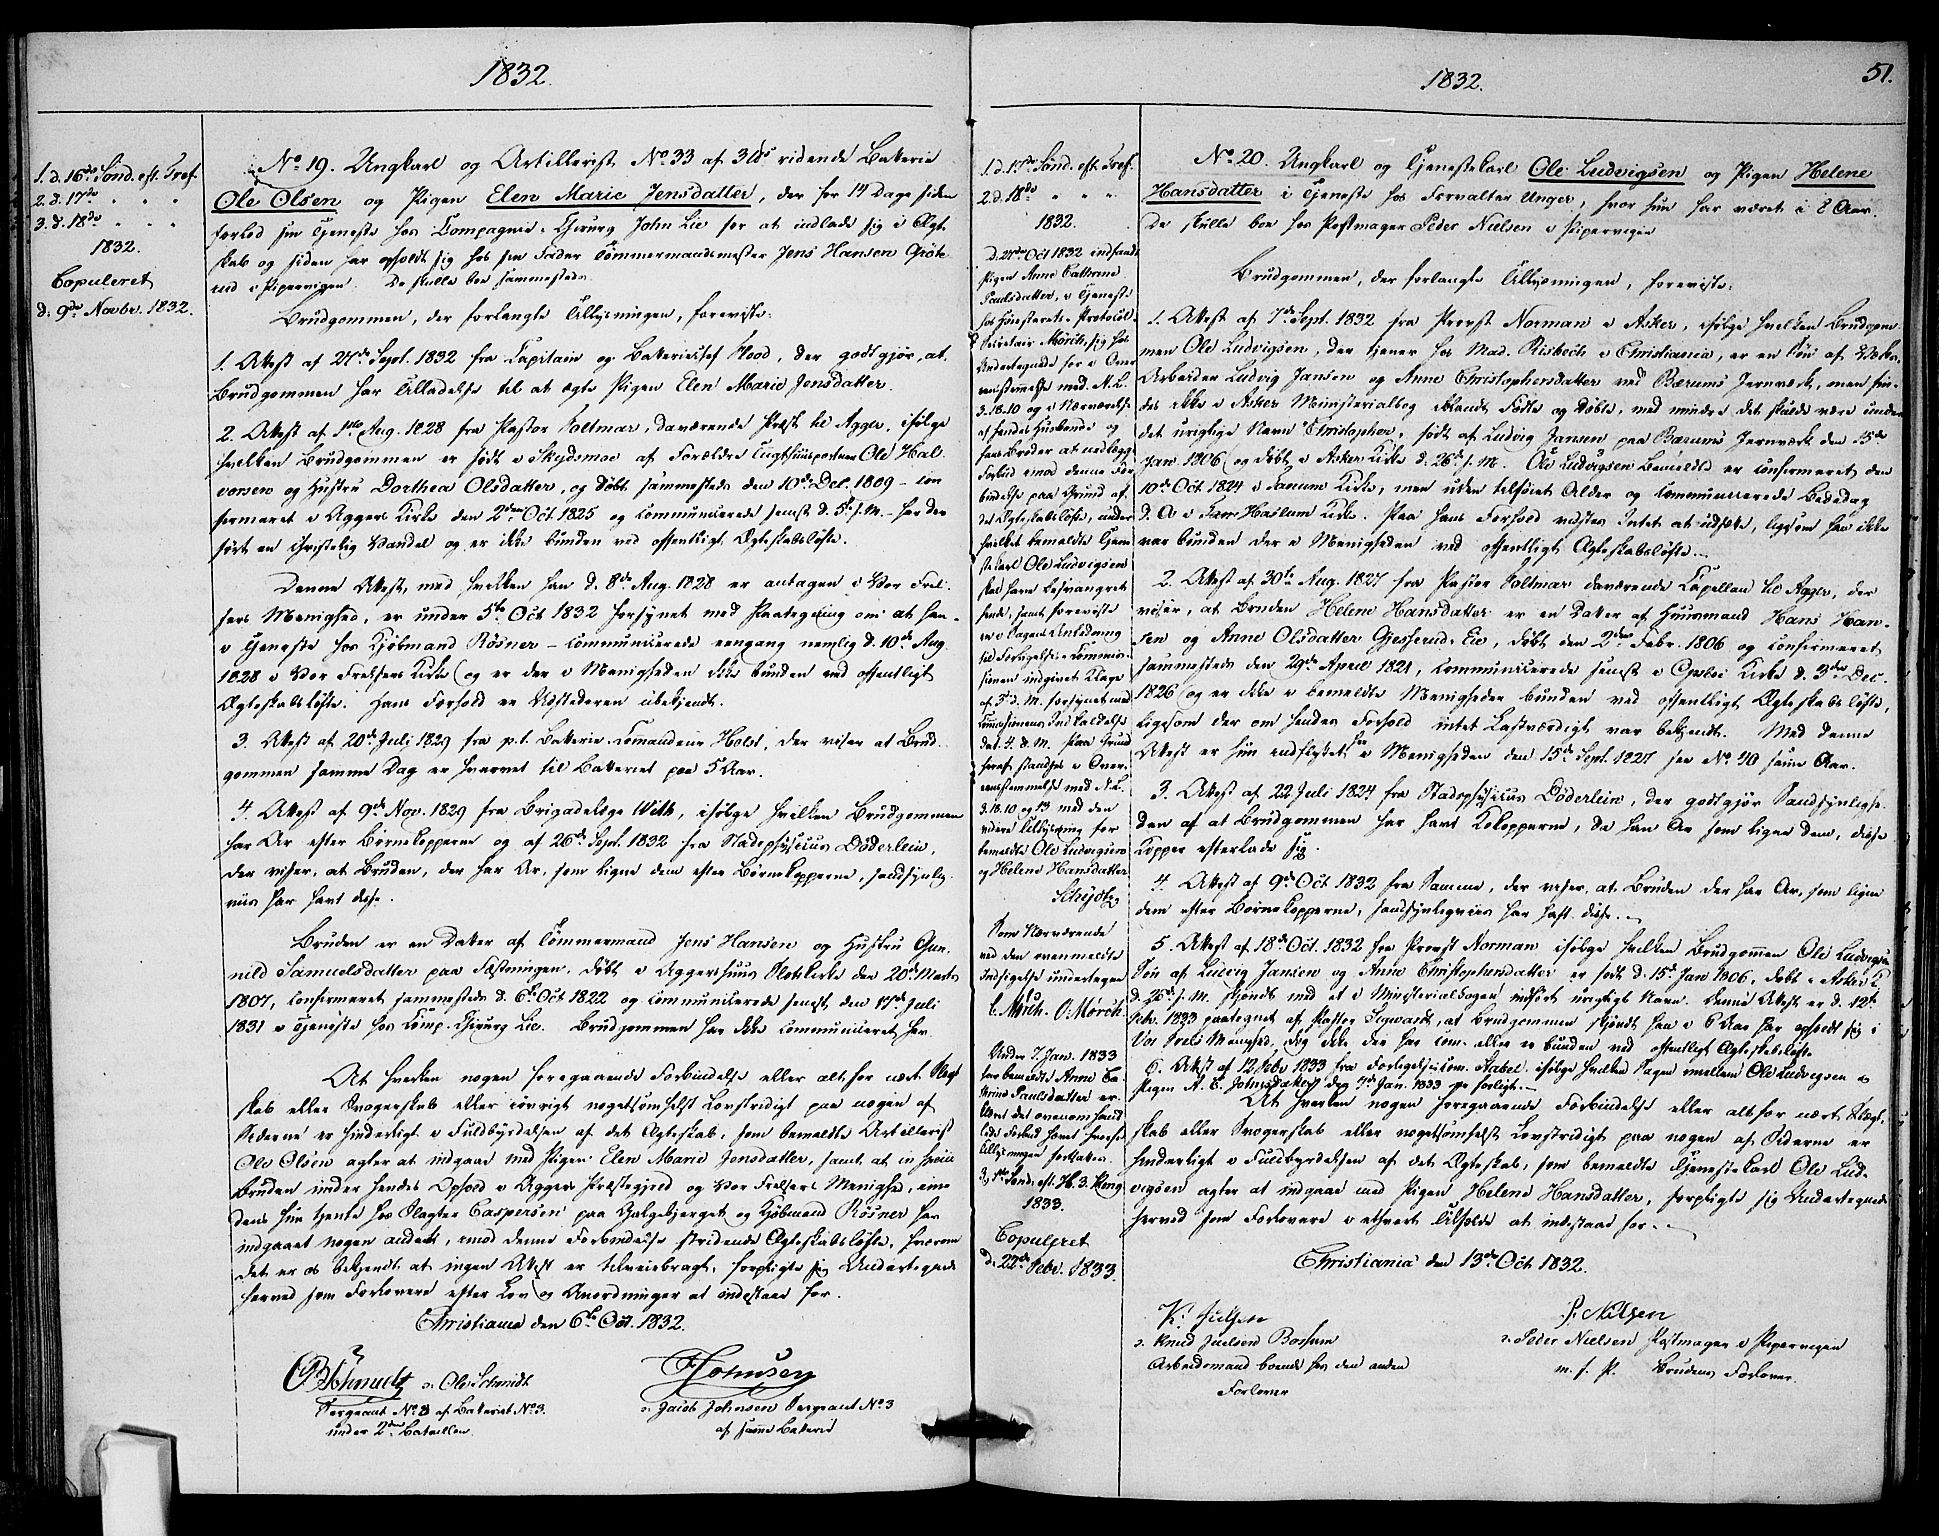 1832.
1. d. 16de Sönd. eft. Tref.
2. d. 17de " " "
3. d. 18de " " "
1832.
Copuleret
d. 9de Novbr. 1832.
No 19. Ungkarl og Artillerist No 33 af 3die ridende Batterie
Ole Olsen og Pigen Elen Marie Jensdatter, der for 14 Dage siden
forlod sin Tjeneste hos Compagnie-Chirurg John Lie for at indlade sig i Ægte
skab og siden har opholdt sig hos sin Fader Tömmermandsmester Jens Hansen
i Pipervigen. De skulle boe sammesteds.
Brudgommen, der forlangte Tillysningen, foreviste:
1. Attest af 27de Sept. 1832 fra Capitain og Batteriechef Hood, der godtgjör, at
Brudgommen har Tilladelse til at ægte Pigen Elen Marie Jensdatter.
2. Attest af 1ste Aug. 1828 fra Pastor Foltmar, daværende Præst til Agger, ifölge
hvilken Brudgommen er födt i Skydsmoe af Forældre Tugthuusportner Ole Hal
vorsen og Hustru Dorthea Olsdatter, og döbt sammesteds den 10de Dec. 1809 – con
firmeret i Aggers Kirke den 2den Oct 1825 og communicerede senest d. 5te s. M. – har der
fört en christelig Vandel og er ikke bunden ved offentligt Ægteskabslöfte.
Denne Attest, med hvilken han d. 8de Aug. 1828 er antagen i Vor Frel
sers Menighed, er under 5te Oct 1832 forsynet med Paategning om at han
i Tjeneste hos Kjöbmand Rösner – communicerede eengang nemlig d. 10de Aug
1828 i Vor Frelsers Kirke og er der i Menigheden ikke bunden ved offentligt
Ægteskabslöfte. Hans Forhold er Udstederen ubekjendt.
3. Attest af 20de Juli 1829 fra p.t. Batterie-Comandeur Holst, der viser at Brud
gommen samme Dag er hvervet til Batteriet paa 5 Aar.
4. Attest af 9de Nov. 1829 fra Brigadelæge With, ifölge hvilken Brudgommen
har Ar efter Börnekopperne og af 26de Sept. 1832 fra Stadsphysicus Döderlein,
der viser, at Bruden, der har Ar, som ligne dem efter Börnekopperne, sandsynlig
viis har havt disse.
Bruden er en Datter af Tömmermand Jens Hansen og Hustru Gun
nild Samuelsdatter paa Fæstningen, döbt i Aggershuus Slotskirke den 20de Marts
1807, confirmeret sammesteds d. 6te Oct 1822 og communicerede senest den 17de Juli
1831 i Tjeneste hos Comp. Chirurg Lie. Brudgommen har ikke communiceret her.
At hverken nogen foregaaende Forbindelse eller alt for nært Slægt
skab eller Svogerskab eller iövrigt nogetsomhelst Lovstridigt paa nogen af
Siderne er hinderligt i Fuldbyrdelsen af det Ægteskab, som bemeldte Artillerist
Ole Olsen agter at indgaae med Pigen Elen Marie Jensdatter, samt at in specie
Bruden under hendes Ophold i Aggers Præstegjeld og Vor Frelsers Menighed, inden
dens hun tjente hos Slagter Caspersen paa Galgebjerget og Kjöbmand Rösner har
indgaaet nogen andet, imod denne Forbindelse stridende Ægteskabslöfte, hvorom
det er os bekjendt at ingen Attest er tilveiebragt, forpligte sig Undertegnede
herved som Forlovere efter Lov og Anordninger at indestaae for.
Christiania den 6te Oct. 1832.
O Schmidt ɔ: Ole Schmidt
Sergeant No 3 af Batteriet No 3.
under 2den Bataillon.
Johnsen
ɔ: Jacob Johnsen Sergeant No 3
af samme Batterie
1832.
51.
1. d. 17de Sönd. eft. Tref.
2. d. 18de " " "
1832.
d. 27de Oct 1832 indfandt
Pigen Anne Cathrine
Paulsdatter, i Tjeneste
hos Höiesterets-Protocol
Secretair Mörch, sig hos
Undertegnede for i Over
eensstemmelse med N. L.
3.18.10 og i Nærværelse
af hendes Huusbonde og
hans Broder at nedlægge
Forbud imod denne For
bindelse paa Grund af
det Ægteskabslöfte, under
hvilket bemeldte Tjene
stekarl Ole Ludvigsen
skal have besvangret
hende, samt foreviste
en i Dagens Anledning
til Forligelses-Commis-
sionen indgivet Klage
af 5 d. M. forsynet med
Commissionens Indkaldelse
dat. 4. d. M. Paa Grund
heraf standses i Over
eensstemmelse med N. L.
3.18.10 og 13 med den
videre Tillysning for
bemeldte Ole Ludvigsen
og Helene Hansdatter
Som Nærværende
ved den ovenmeldte
Indsigelse undertegne
C. Mörch. O. Mörch.
Under 7. Jan. 1833
har bemeldte Anne Ca
thrine Paulsdatter er
klæret det ovenomhand
lede Forbud hævet hvorfor
Tillysningen fortsættes.
3, 3die Sönd. eft. H. 3. Kong.
1833.
Copuleret
d. 22de Febr. 1833.
No 20. Ungkarl og Tjenestekarl Ole Ludvigsen og Pigen Helene
Hansdatter i Tjeneste hos Forvalter Unger, hvor hun har været i 8 Aar.
De skulle boe hos Postmager Peder Nielsen i Pipervigen
Brudgommen, der forlangte Tillysningen, foreviste:
1. Attest af 7de Sept. 1832 fra Provst Norman i Asker, ifölge hvilken Brudgom
men Ole Ludvigsen, der tjener hos Mad. Risbech i Christiania, er en Sön af Værks
Arbeider Ludvig Jansen og Anne Christophersdatter ved Bærums Jernværk, men fin-
des ikke i Asker Ministerialbog iblandt Födte og Döbte, med mindre det skulde være under
det urigtige Navn Christopher, födt af Ludvig Jansen paa Bærums Jernværk den 15de
Jan 1806 og döbt i Asker Kirke d. 26de s. M. Ole Ludvigsen Bemeldte er confirmeret den
10de Oct 1824 i Tanum Kirke, men uden tilföiet Alder og communicerede Bededag
d. A. i Haslum Kirke. Paa hans Forhold vidstes Intet at udsætte, ligesom han ikke
var bunden der i Menigheden ved offentligt Ægteskabslöfte.
2. Attest af 30te Aug. 1827 fra Pastor Foltmar daværende Capellan til Agger, der
viser, at Bruden Helene Hansdatter er en Datter af Huusmand Hans Han-
sen og Anne Olsdatter Gjesserud-Eie, döbt den 2den Febr. 1806 og confirmeret
sammesteds den 29de April 1821, communicerede senest i Opsloe Kirke d. 3die Dec.
1826 og er ikke i bemeldte Menigheder bunden ved offentligt Ægteskabslöfte,
ligesom der om hendes Forhold intet Lastværdigt var bekjendt. Med denne
Attest er hun indflyttet her i Menigheden den 15de Sept. 1827 see No 40 samme Aar.
3. Attest af 22 Juli 1824 fra Stadsphysicus Döderlein, der godtgjör Sandsynlighe-
den af at Brudgommen har havt Kokopperne, da han Ar som ligne dem, disse
Kopper efterlade sig.
4. Attest af 9de Oct 1832 fra Samme, der viser, at Bruden der har Ar, som ligne
dem efter Börnekopperne, sandsynligviis har haft disse.
5. Attest af 18de Oct. 1832 fra Provst Norman ifölge hvilken Brudgommen Ole Ludvigsen
Sön af Ludvig Jansen og Anne Christophersdatter er födt d. 15de Jan 1806, döbt i Asker K.
d. 26de s. M. skjöndt med et i Ministerialbogen indfört urigtigt Navn. Denne Attest er d. 12te
Febr. 1833 paategnet af Pastor Sigwardt, at Brudgommen skjöndt han i 6 Aar har opholdt sig i
Vor Frels. Menighed, dog ikke der har com. eller er bunden ved offentligt Ægteskabslöfte
6. Attest af 12 Febr 1833 fra Forligelsescom. Stabel, ifölge hvilken Sagen imellem Ole Ludvigsen og
Pigen A. C. Johnsdatter dag 7de Jan. 1833 er forligt.
At hverken nogen foregaaende Forbindelse eller altfor nært Slægt
skab eller Svogerskab eller nogetsomhelst Lovstridigt paa nogen af Siderne er
hinderligt i Fuldbyrdelsen af det Ægteskab, som bemeldte Tjenestekarl Ole Lud-
vigsen agter at indgaae med Pigen Helene Hansdatter, forpligte sig Undertegnede
herved som Forlovere i ethvert Tilfælde at indestaae for.
Christiania den 13de Oct 1832.
K. Juelsen
ɔ: Knud Juelsen
Arbeidsmand boende hos den anden
Forlover
P. Nilsen
ɔ: Peder Nielsen Postmager i Pipervigen
m. f. P. Brudens Forlover.